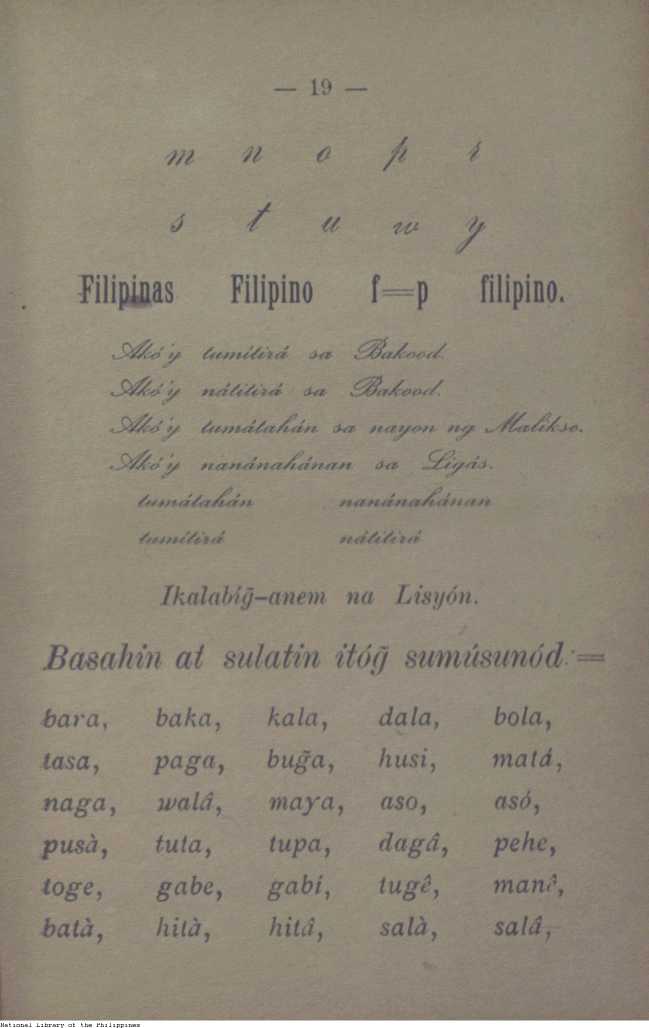 — 19 —
m n o p r
s t u w y
Filipinas Filipino f=p filipino.
Akó'y tumítirá sa Bakood.
Akó'y nátitirá sa Bakood.
Akó'y tumátahán sa nayon ng Malikso.
Akó'y nanánahánan sa Ligás.
tumátahán nanánahánan
tumítirá nátitirá
Ikalabíg̃-anem na Lisyón.
Basahin at sulatin itóg̃ sumúsunód:=
bara, baka, kala, dala, bola,
tasa, paga, bug̃a, husi, matá,
naga, walâ, maya, aso, asó,
pusà, tuta, tupa, dagâ, pehe,
toge, gabe, gabí, tugê, manê,
batà, hità, hitâ, salà, salâ,
National Library of the Philippines